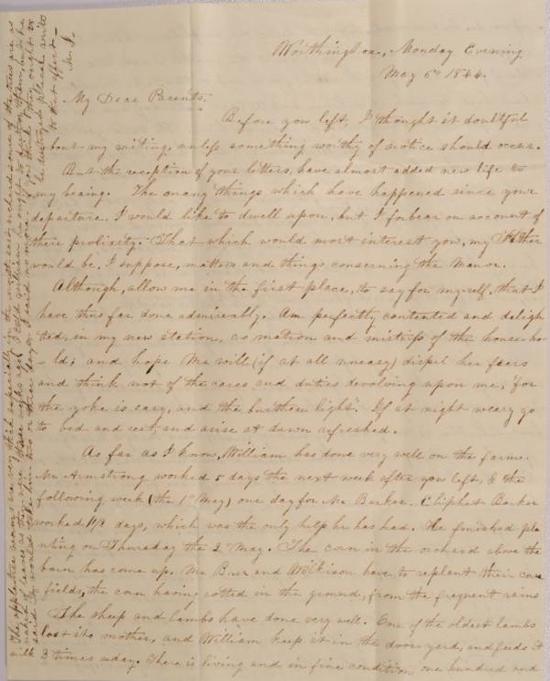 Worthington, Monday Evening
May 6th 1844.
My Dear Parents,
Before you left, I thought it doubtful
about my writing, unless something worthy of notice should occur.
But the reception of your letters, have almost added new life to
my being. The many things which have happened since your
departure, I would like to dwell upon, but I forbear on account of
their prolixity. That which would most interest you, my Father
would be, I suppose, matters and things concerning the Manor.
Although, allow me in the first place, to say for myself, that I
have thus far done admirably. Am perfectly contented and deligh
ted, in my new station, as matron and mistress of the househo
ld; and hope Ma will (if at all uneasy) dispel her fears
and think not of the cares and duties devolving upon me, "for
the yoke is easy, and the burthen light." If at night weary go
to bed and rest, and arise at dawn refreshed.
As far as I know, William has done very well on the farm.
Mr Armstrong worked 5 days the next week after you left, & the
following week (the 1st May) one day for Mr Barker. Chiphar Barker
worked days, which was the only help he has had. He finished pla
nting on Thursday the 2nd May. The corn in the orchard above the
barn has come up. Mr Burr and Wilkison have to replant their corn
fields, the corn having rotted in the ground, from the frequent rains
The sheep and lambs have done very well. One of the oldest lambs
lost its mother, and William keeps it in the door yard, and feeds it
milk 3 times a day. There is living and in fine condition one hundred and
The apple trees many are very thick especially in the